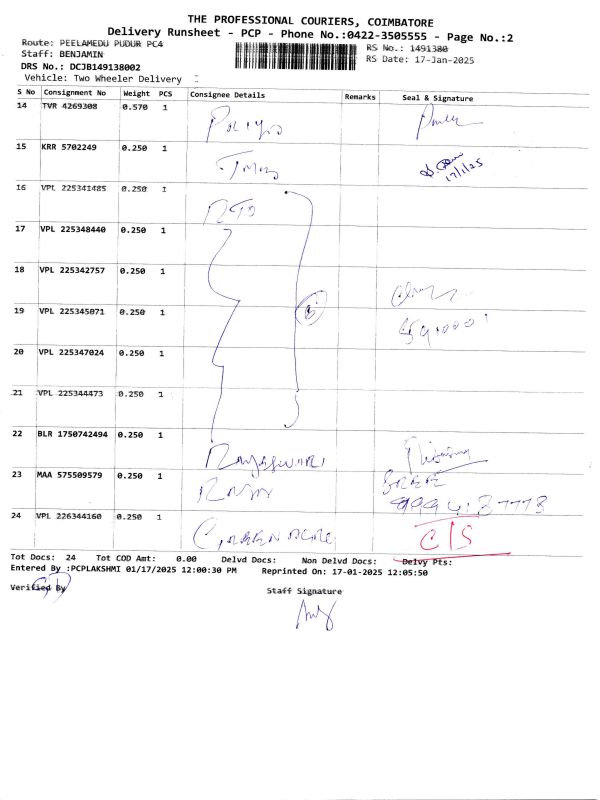 THE PROFESSIONAL COURIERS, COIMBATORE
Delivery Runsheet - PCP - Phone No.:0422-3505555 - Page No.:2
Route: PEELAMEDU PUDUR PC4 RS No.: 1491380
Staff: BENJAMIN RS Date: 17-Jan-2025
DRS No.: DCJB149138002
Vehicle: Two Wheeler Delivery
S No Consignment No Weight PCS Consignee Details Remarks Seal & Signature
14 TVR 4269308 0.570 1
15 KRR 5702249 0.250 1
17/1/25
16 VPL 225341485 0.250 1 RTO
17 VPL 225348440 0.250 1
18 VPL 225342757 0.250 1
19 VPL 225345071 0.250 1
20 VPL 225347024 0.250 1
21 VPL 225344473 0.250 1
22 BLR 1750742494 0.250 1
23 MAA 575509579 0.250 1
24 VPL 226344160 0.250 1 C/S
Tot Docs: 24 Tot COD Amt: 0.00 Delvd Docs: Non Delvd Docs: Delvy Pts:
Entered By :PCPLAKSHMI 01/17/2025 12:00:30 PM Reprinted On: 17-01-2025 12:05:50
Verified By Staff Signature